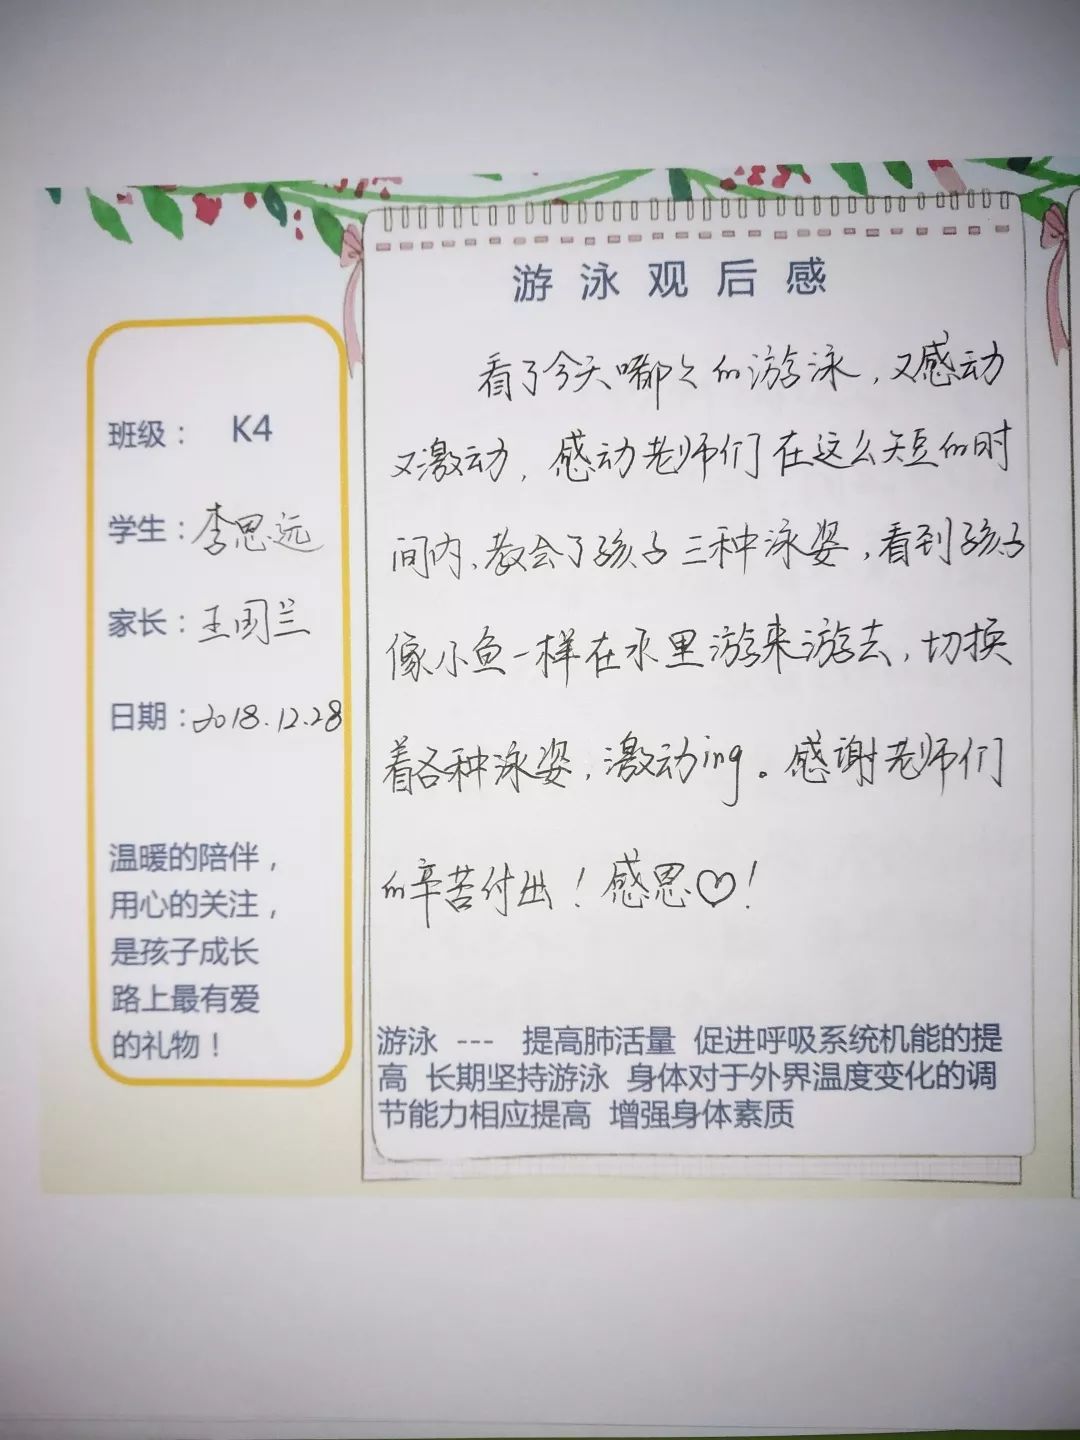 游泳观后感
班级： K4
学生：李思远
家长：王国兰
日期：2018.12.28
温暖的陪伴，
用心的关注，
是孩子成长
路上最有爱
的礼物！
看了今天嘟々的游泳，又感动
又激动，感动老师们在这么短的时
间内、教会了孩子三种泳姿，看到孩子
像小鱼一样在水里游来游去，切换
着各种泳姿，激动ing。感谢老师们
的辛苦付出！感恩♡！
游泳 --- 提高肺活量 促进呼吸系统机能的提
高 长期坚持游泳 身体对于外界温度变化的调
节能力相应提高 增强身体素质